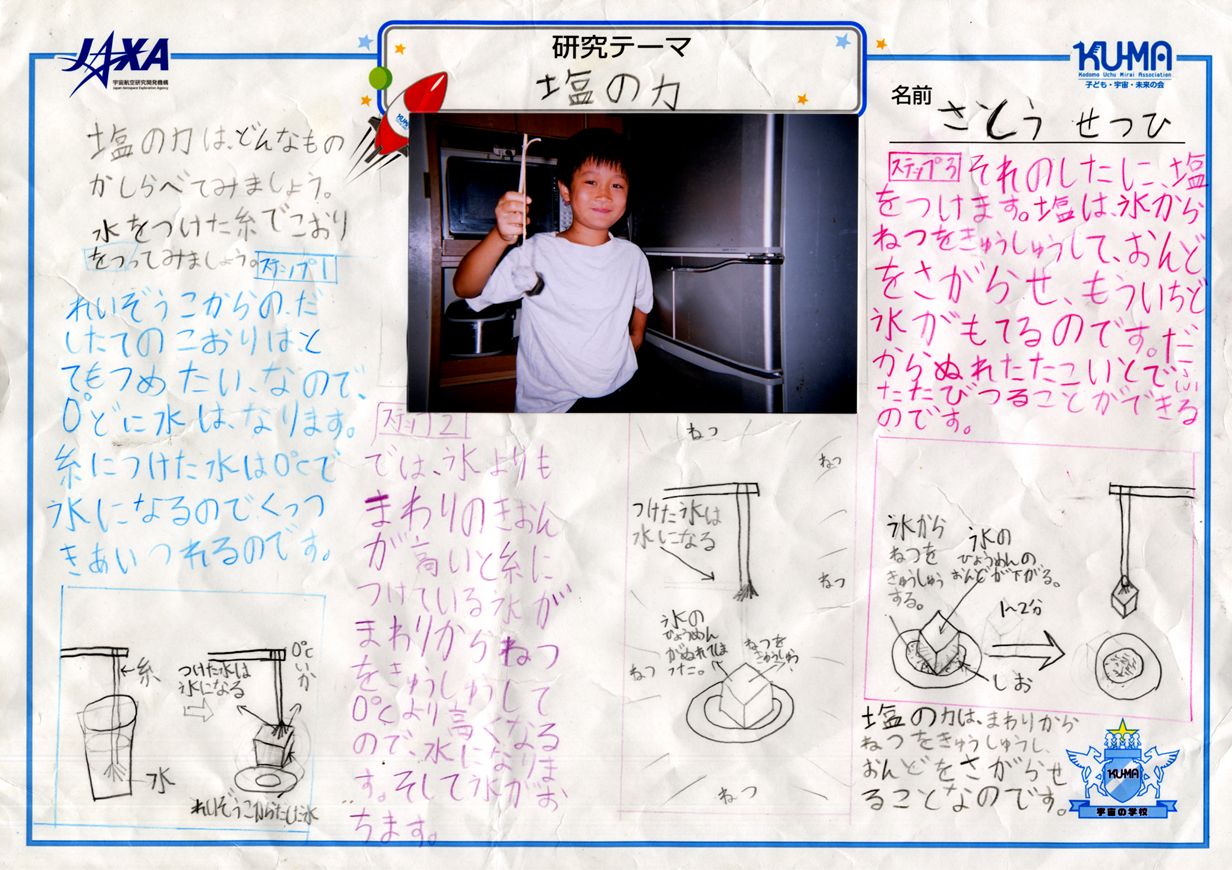 JAXA
宇宙航空研究開発機構
Japan Aerospace Exploration Agency
研究テーマ
塩の力
KU-MA
Kodomo Uchu Mirai Association
子ども・宇宙・未来の会
名前
さとう せつひ
塩の力は、どんなもの
かしらべてみましょう。
水をつけた糸でこおり
をつってみましょう。
ステップ1
れいぞうこからの、だ
したてのこおりは、と
てもつめたい、なので、
0°どに水は、なります。
糸につけた水は0℃で
氷になるのでくっつ
きあいつれるのです。
糸
つけた水は
氷になる
0℃
いか
水
れいぞうこからだした氷
ステップ2
では、氷よりも
まわりのきおん
が高いと糸に
つけている氷が
まわりからねつ
をきゅうしゅうして
0℃より高くなる
ので、水になりま
す。そして氷がお
ちます。
ねつ
ねつ
つけた氷は
水になる
ねつ
氷の
ひょうめん
がぬれてしま
った。
ねつを
きゅうしゅう
ねつ
ねつ
ステップ3
それのしたに、塩
をつけます。塩は、氷から
ねつをきゅうしゅうして、おんど
をさがらせ、もういちど
氷がもてるのです。だ
からぬれたたこいとでふい
たたびつることができる
のです。
氷から
ねつを
きゅうしゅう
する。
氷の
ひょうめんの
おんどが下がる。
1~2分
しお
塩の力は、まわりから
ねつをきゅうしゅうし、
おんどをさがらせ
ることなのです。
KU-MA
宇宙の学校